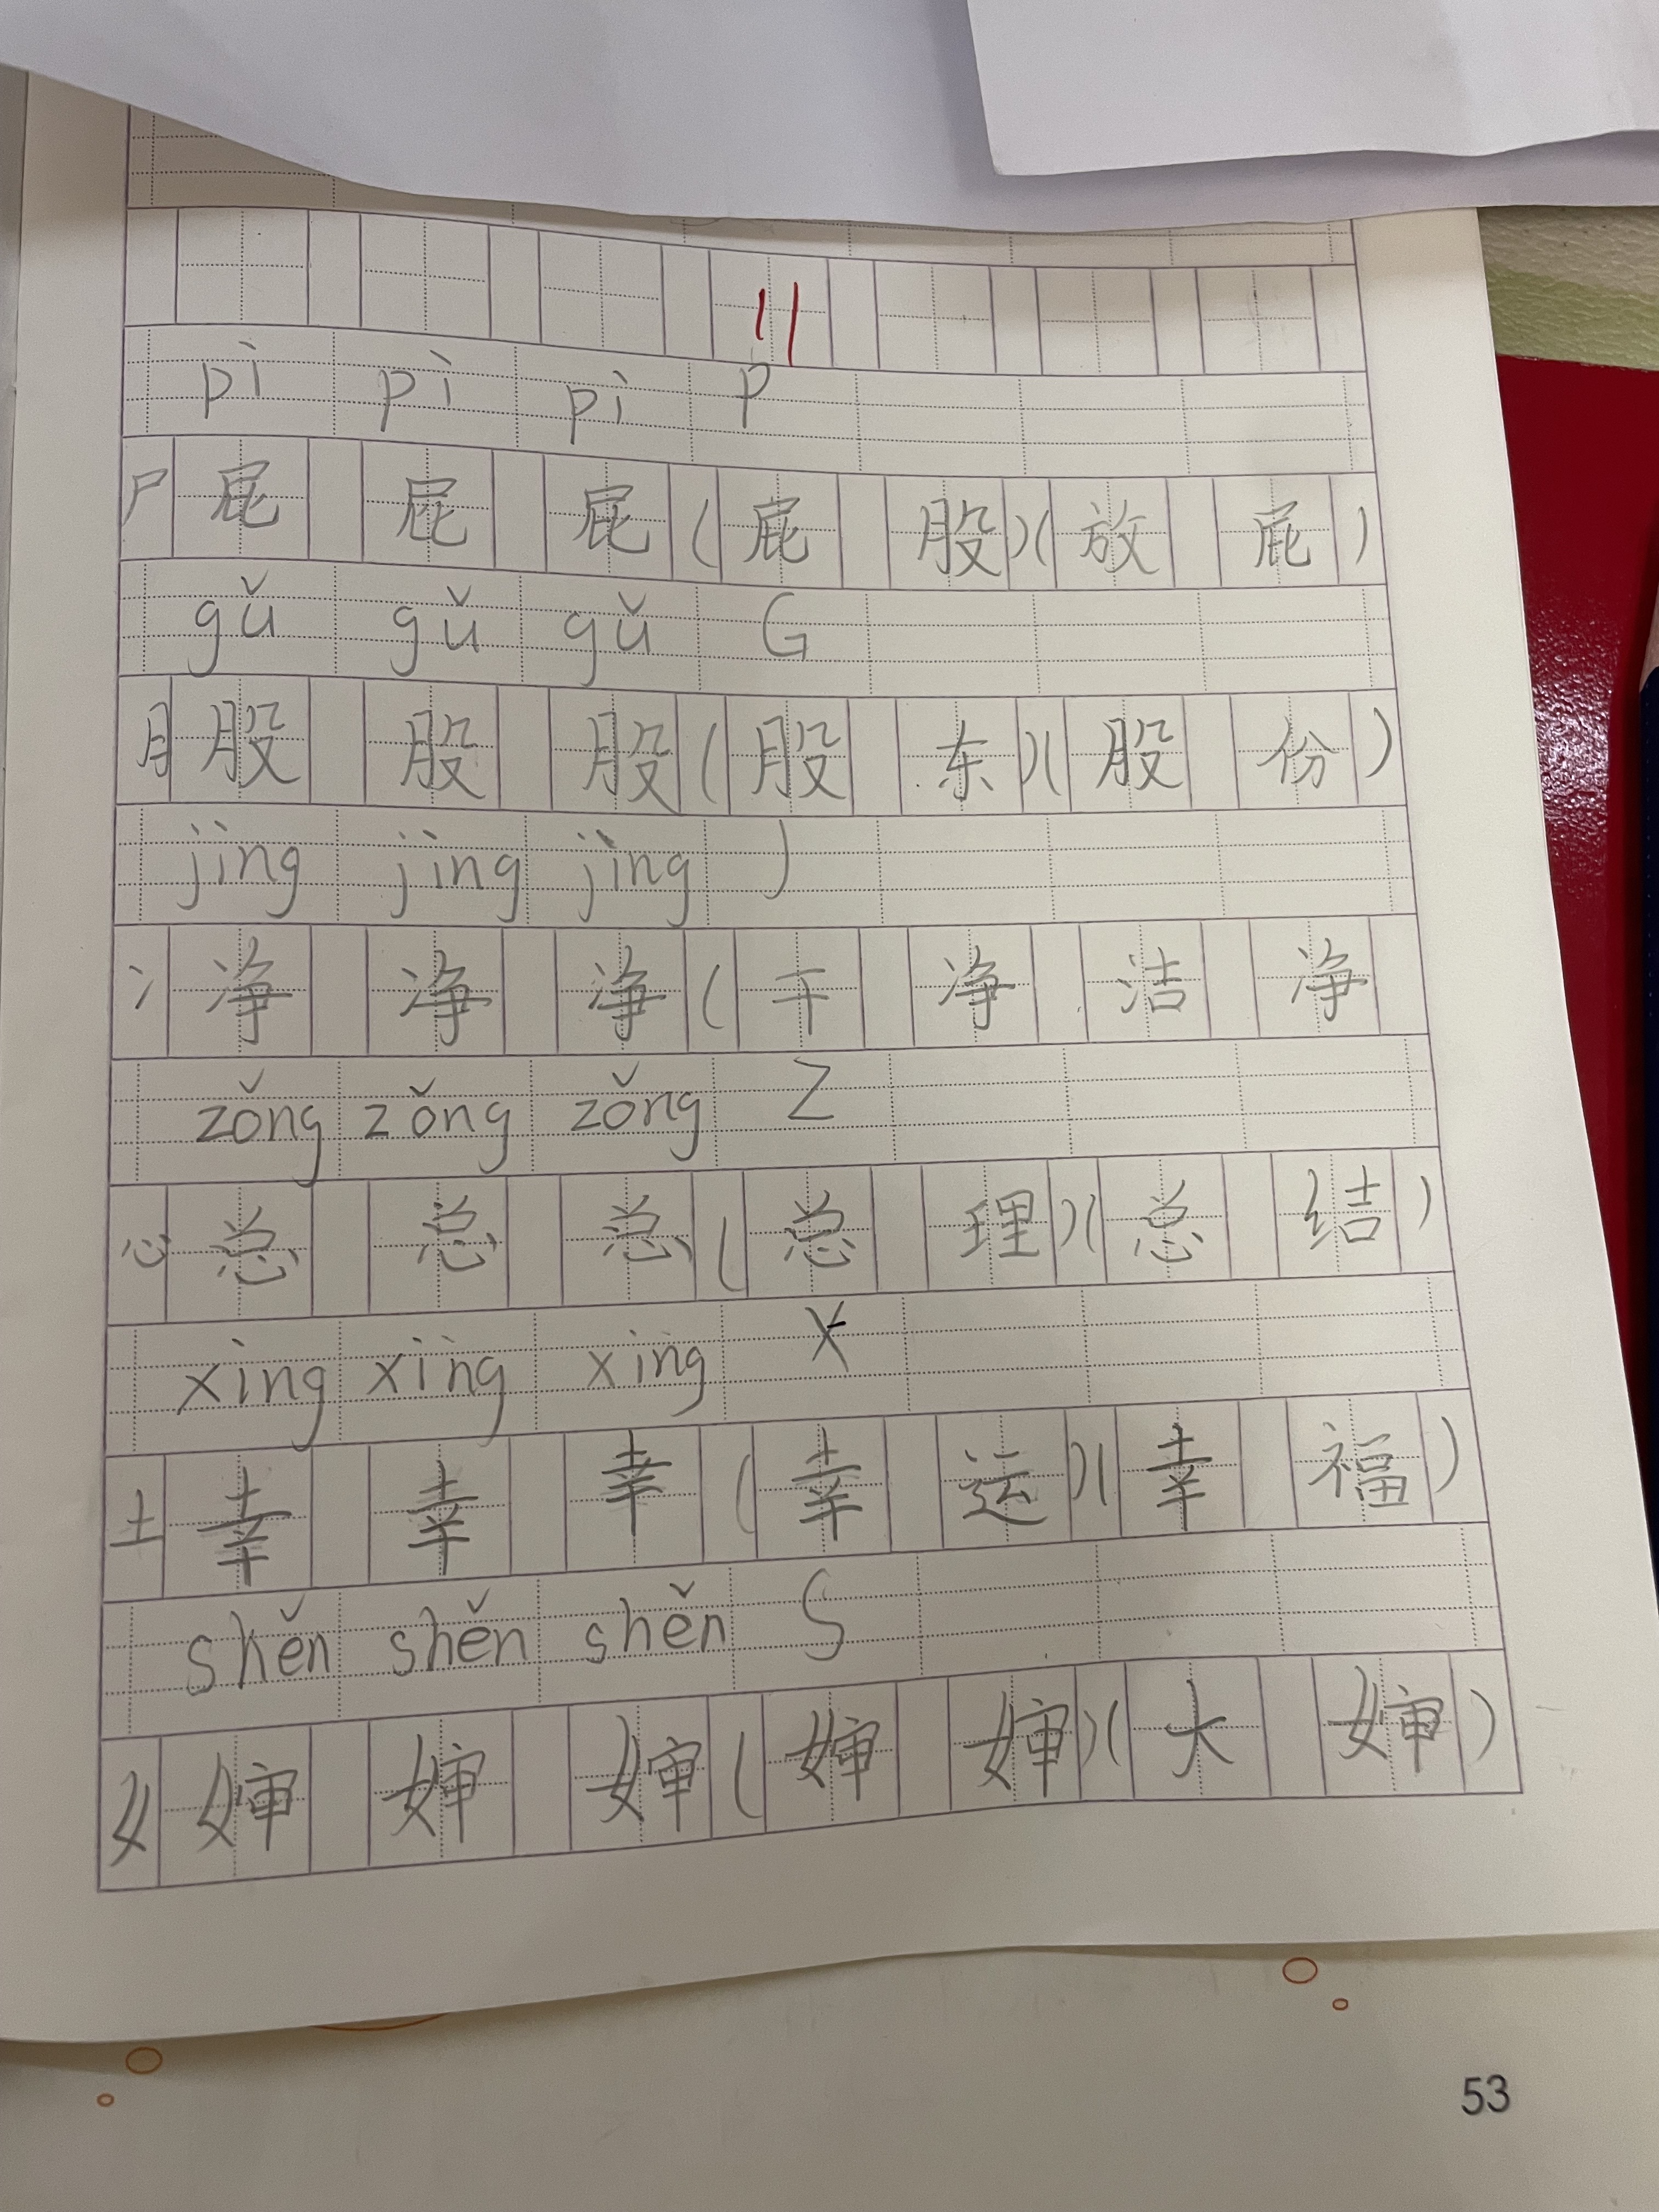 11
pì pì pì P
尸 屁 屁 屁 ( 屁 股 ) ( 放 屁 )
gǔ gǔ gǔ G
月 股 股 股 ( 股 东 ) ( 股 份 )
jìng jìng jìng J
冫 净 净 净 ( 干 净 洁 净
zǒng zǒng zǒng Z
心 总 总 总 ( 总 理 ) ( 总 结 )
xìng xìng xìng X
土 幸 幸 幸 ( 幸 运 ) ( 幸 福 )
shěn shěn shěn S
女 婶 婶 婶 ( 婶 婶 ) ( 大 婶 )
53